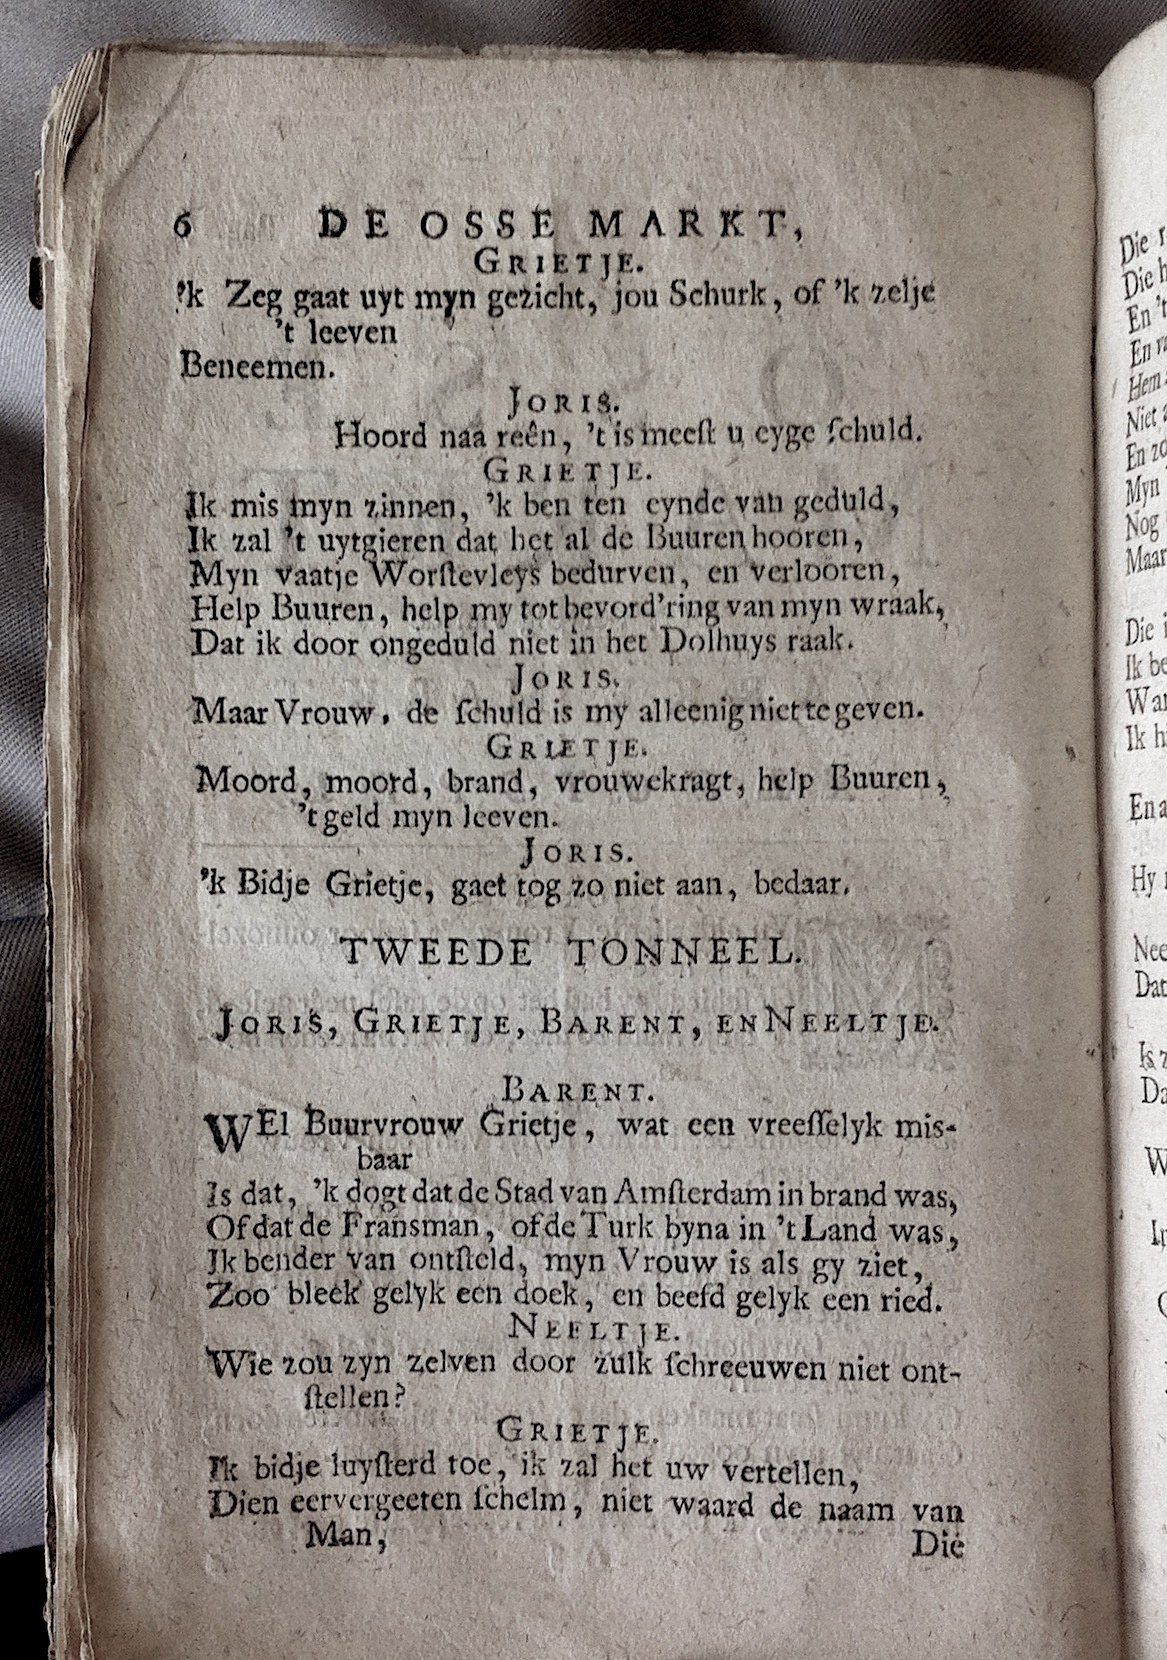 6 DE OSSE MARKT,
GRIETJE.
'k Zeg gaat uyt myn gezicht, jou Schurk, of 'k zelje
't leeven
Beneemen.
JORIS.
Hoord naa reên, 't is meeſt u eyge ſchuld.
GRIETJE.
Ik mis myn zinnen, 'k ben ten eynde van geduld,
Ik zal 't uytgieren dat het al de Buuren hooren,
Myn vaatje Worſtevleys bedurven, en verlooren,
Help Buuren, help my tot bevord'ring van myn wraak,
Dat ik door ongeduld niet in het Dolhuys raak.
JORIS.
Maar Vrouw, de ſchuld is my alleenig niet te geven.
GRIETJE.
Moord, moord, brand, vrouwekragt, help Buuren,
't geld myn leeven.
JORIS.
'k Bidje Grietje, gaet tog zo niet aan, bedaar.
TWEEDE TONNEEL.
JORIS, GRIETJE, BARENT, EN NEELTJE.
BARENT.
WEl Buurvrouw Grietje, wat een vreeſſelyk mis-
baar
Is dat, 'k dogt dat de Stad van Amſterdam in brand was,
Of dat de Fransman, of de Turk byna in 't Land was,
Ik bender van ontſteld, myn Vrouw is als gy ziet,
Zoo bleek gelyk een doek, en beefd gelyk een ried.
NEELTJE.
Wie zou zyn zelven door zulk ſchreeuwen niet ont-
ſtellen?
GRIETJE.
Ik bidje luyſterd toe, ik zal het uw vertellen,
Dien eervergeeten ſchelm, niet waard de naam van
Man,
Die
Die
Die h
En 't
En va
Hem
Niet
En zo
Myn
Nog
Maar
Die i
Ik be
Wan
Ik h
En a
Hy
Nee
Dat
Is z
Da
W
In